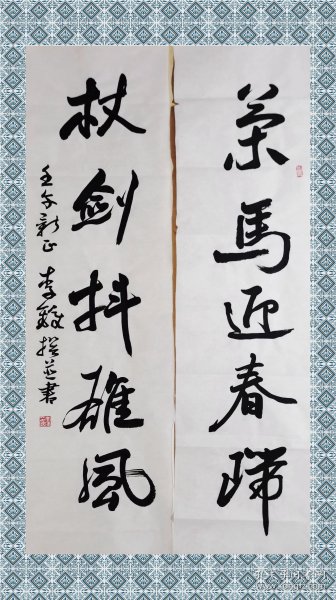 策馬迎春歸
杖劍抖雄風
壬午新正 李撰並書